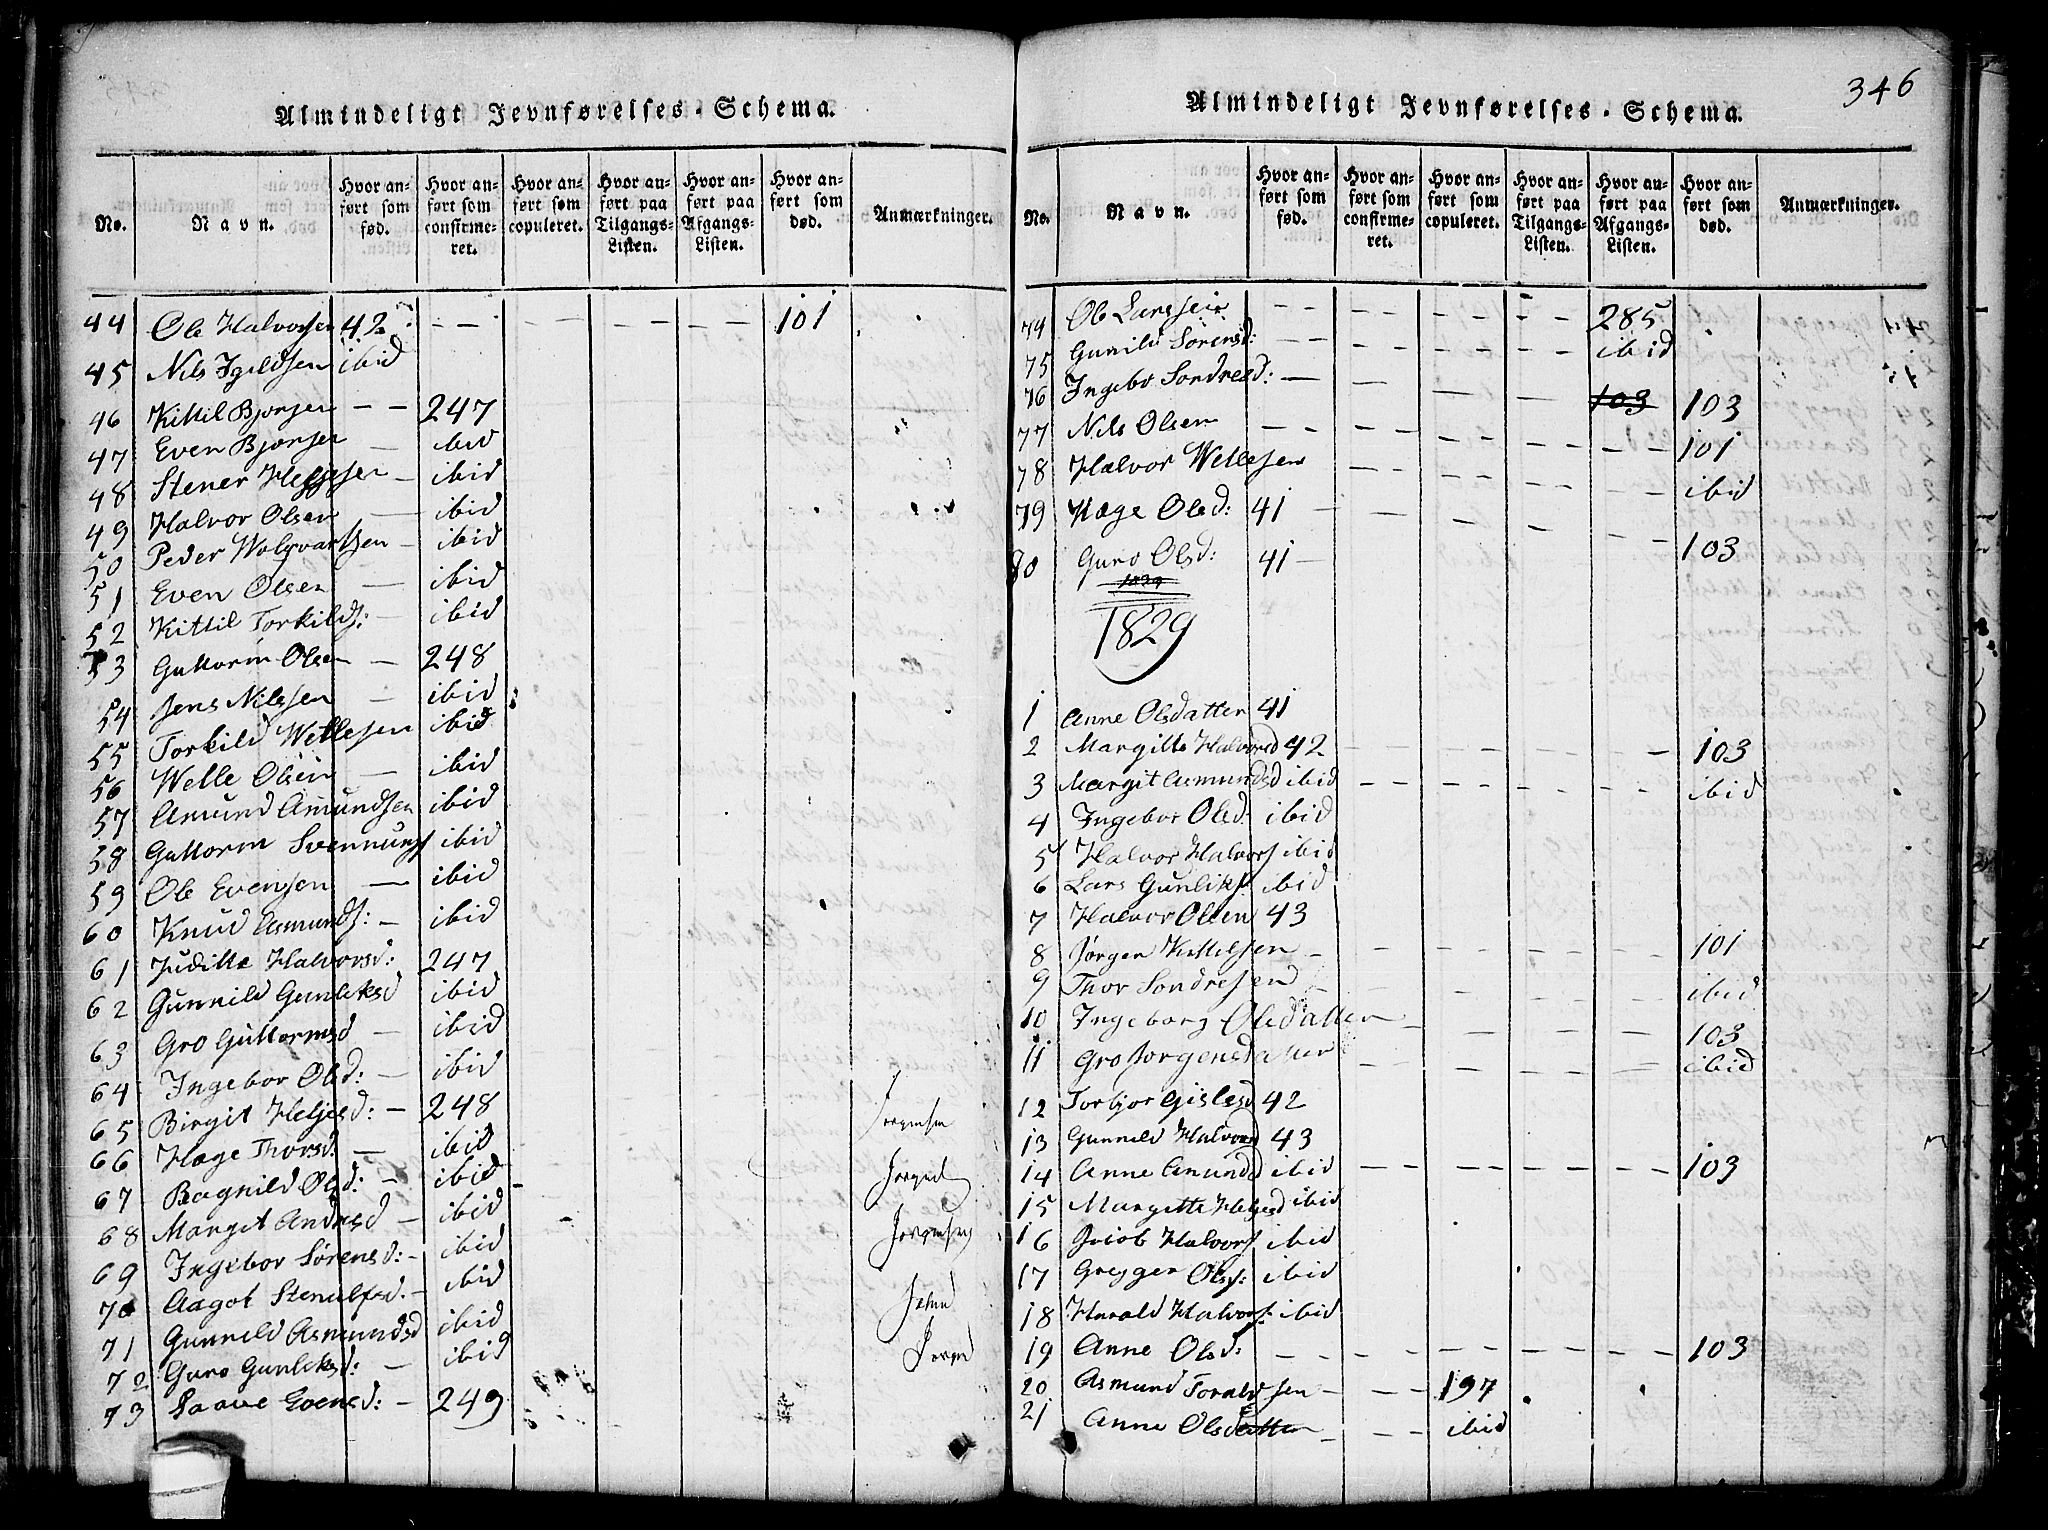 Almindeligt Jevnførelses-Schema.
No. Navn. Hvor anført som fød. Hvor anført som confirmeret. Hvor anført som copuleret. Hvor anført paa Tilgangs-Listen. Hvor anført paa Afgangs-Listen. Hvor anført som død. Anmærkninger.
44 Ole Halvorsen 42 - - - - - - - 101
45 Nils Igeldsen ibid
46 Kittil Bjorsen - - 247
47 Even Bjorsen - ibid
48 Stener Helgesen - ibid
49 Halvor Olsen - ibid
50 Peder Wolqvartsen - ibid
51 Even Olsen - ibid
52 Kittil Torkilds: - ibid
53 Guttorm Olsen - 248
54 Jens Nilssen - ibid
55 Torkild Wetlesen ibid
56 Welle Olsen - ibid
57 Amund Amundsen ibid
58 Guttorm Svennungs ibid
59 Ole Evensen - ibid
60 Knud Asmunds: - ibid
61 Juditte Halvorsd: 247
62 Gunnild Gunliksd ibid
63 Gro Guttormsd - ibid
64 Ingebor Olsd: - ibid
65 Birgit Heljesd: - 248
66 Hæge Thorsd: - ibid
67 Ragnild Olsd: - ibid
68 Margit Andresd - ibid
69 Ingebor Sørensd: - ibid
70 Aagot Stenulfsd: - ibid
71 Gunnild Asmundsd ibid
72 Guro Gunliksd: - ibid
73 Saave Evensd: - 249
Almindeligt Jevnførelses-Schema.
346
No. Navn. Hvor anført som fød. Hvor anført som confirmeret. Hvor anført som copuleret. Hvor anført paa Tilgangs-Listen. Hvor anført paa Afgangs-Listen. Hvor anført som død. Anmærkninger.
74 Ole Larssen - - - - 285
75 Gunild Sørensd: - - - - ibid
76 Ingebor Sondresd: - - - - 103 103
77 Nils Olsen - - - - - 101
78 Halvor Wetlesen - - - - ibid
79 Hæge Olsd: 41 - - - - 103
80 Guro Olsd: 41 -
1829
1829
1 Anne Olsdatter 41
2 Margitte Halvorsd 42 - - - - 103
3 Margit Asmundsd ibid - - - - ibid
4 Ingebor Olsd: ibid
5 Halvor Halvors ibid
6 Lars Gunliks: ibid
7 Halvor Olsen 43
8 Jørgen Kittilsen - - - - - 101
9 Thor Sondresen - - - - - ibid
10 Ingeborg Olsdatter - - - - 103
11 Gro Jorgensdatter - - - - ibid
12 Torbjor Gislesd 42
13 Gunnild Halvorsd 43
14 Anne Amundsd ibid - - - - 103
15 Margitte Heljesd ibid
16 Jacob Halvors ibid
17 Greyger Ols: ibid
18 Harald Halvors: ibid
19 Anne Olsd: - - - - - 103
20 Asmund Toraldsen - - - 197
21 Anne Olsdatter - - ibid